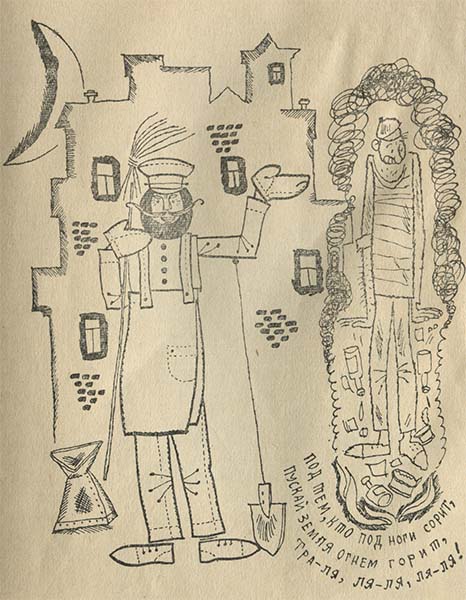 ПОД ТЕМ, КТО ПОД НОГИ СОРИТ,
ПУСКАЙ ЗЕМЛЯ ОГНЕМ ГОРИТ,
ТРА-ЛЯ, ЛЯ-ЛЯ, ЛЯ-ЛЯ!